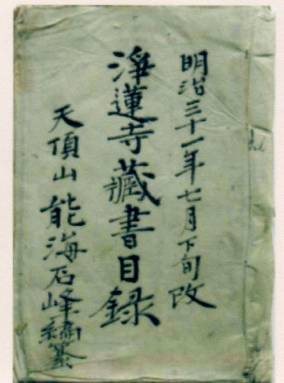 明治三十一年七月下旬改
淨蓮寺藏書目録
天頂山能海石峰編纂